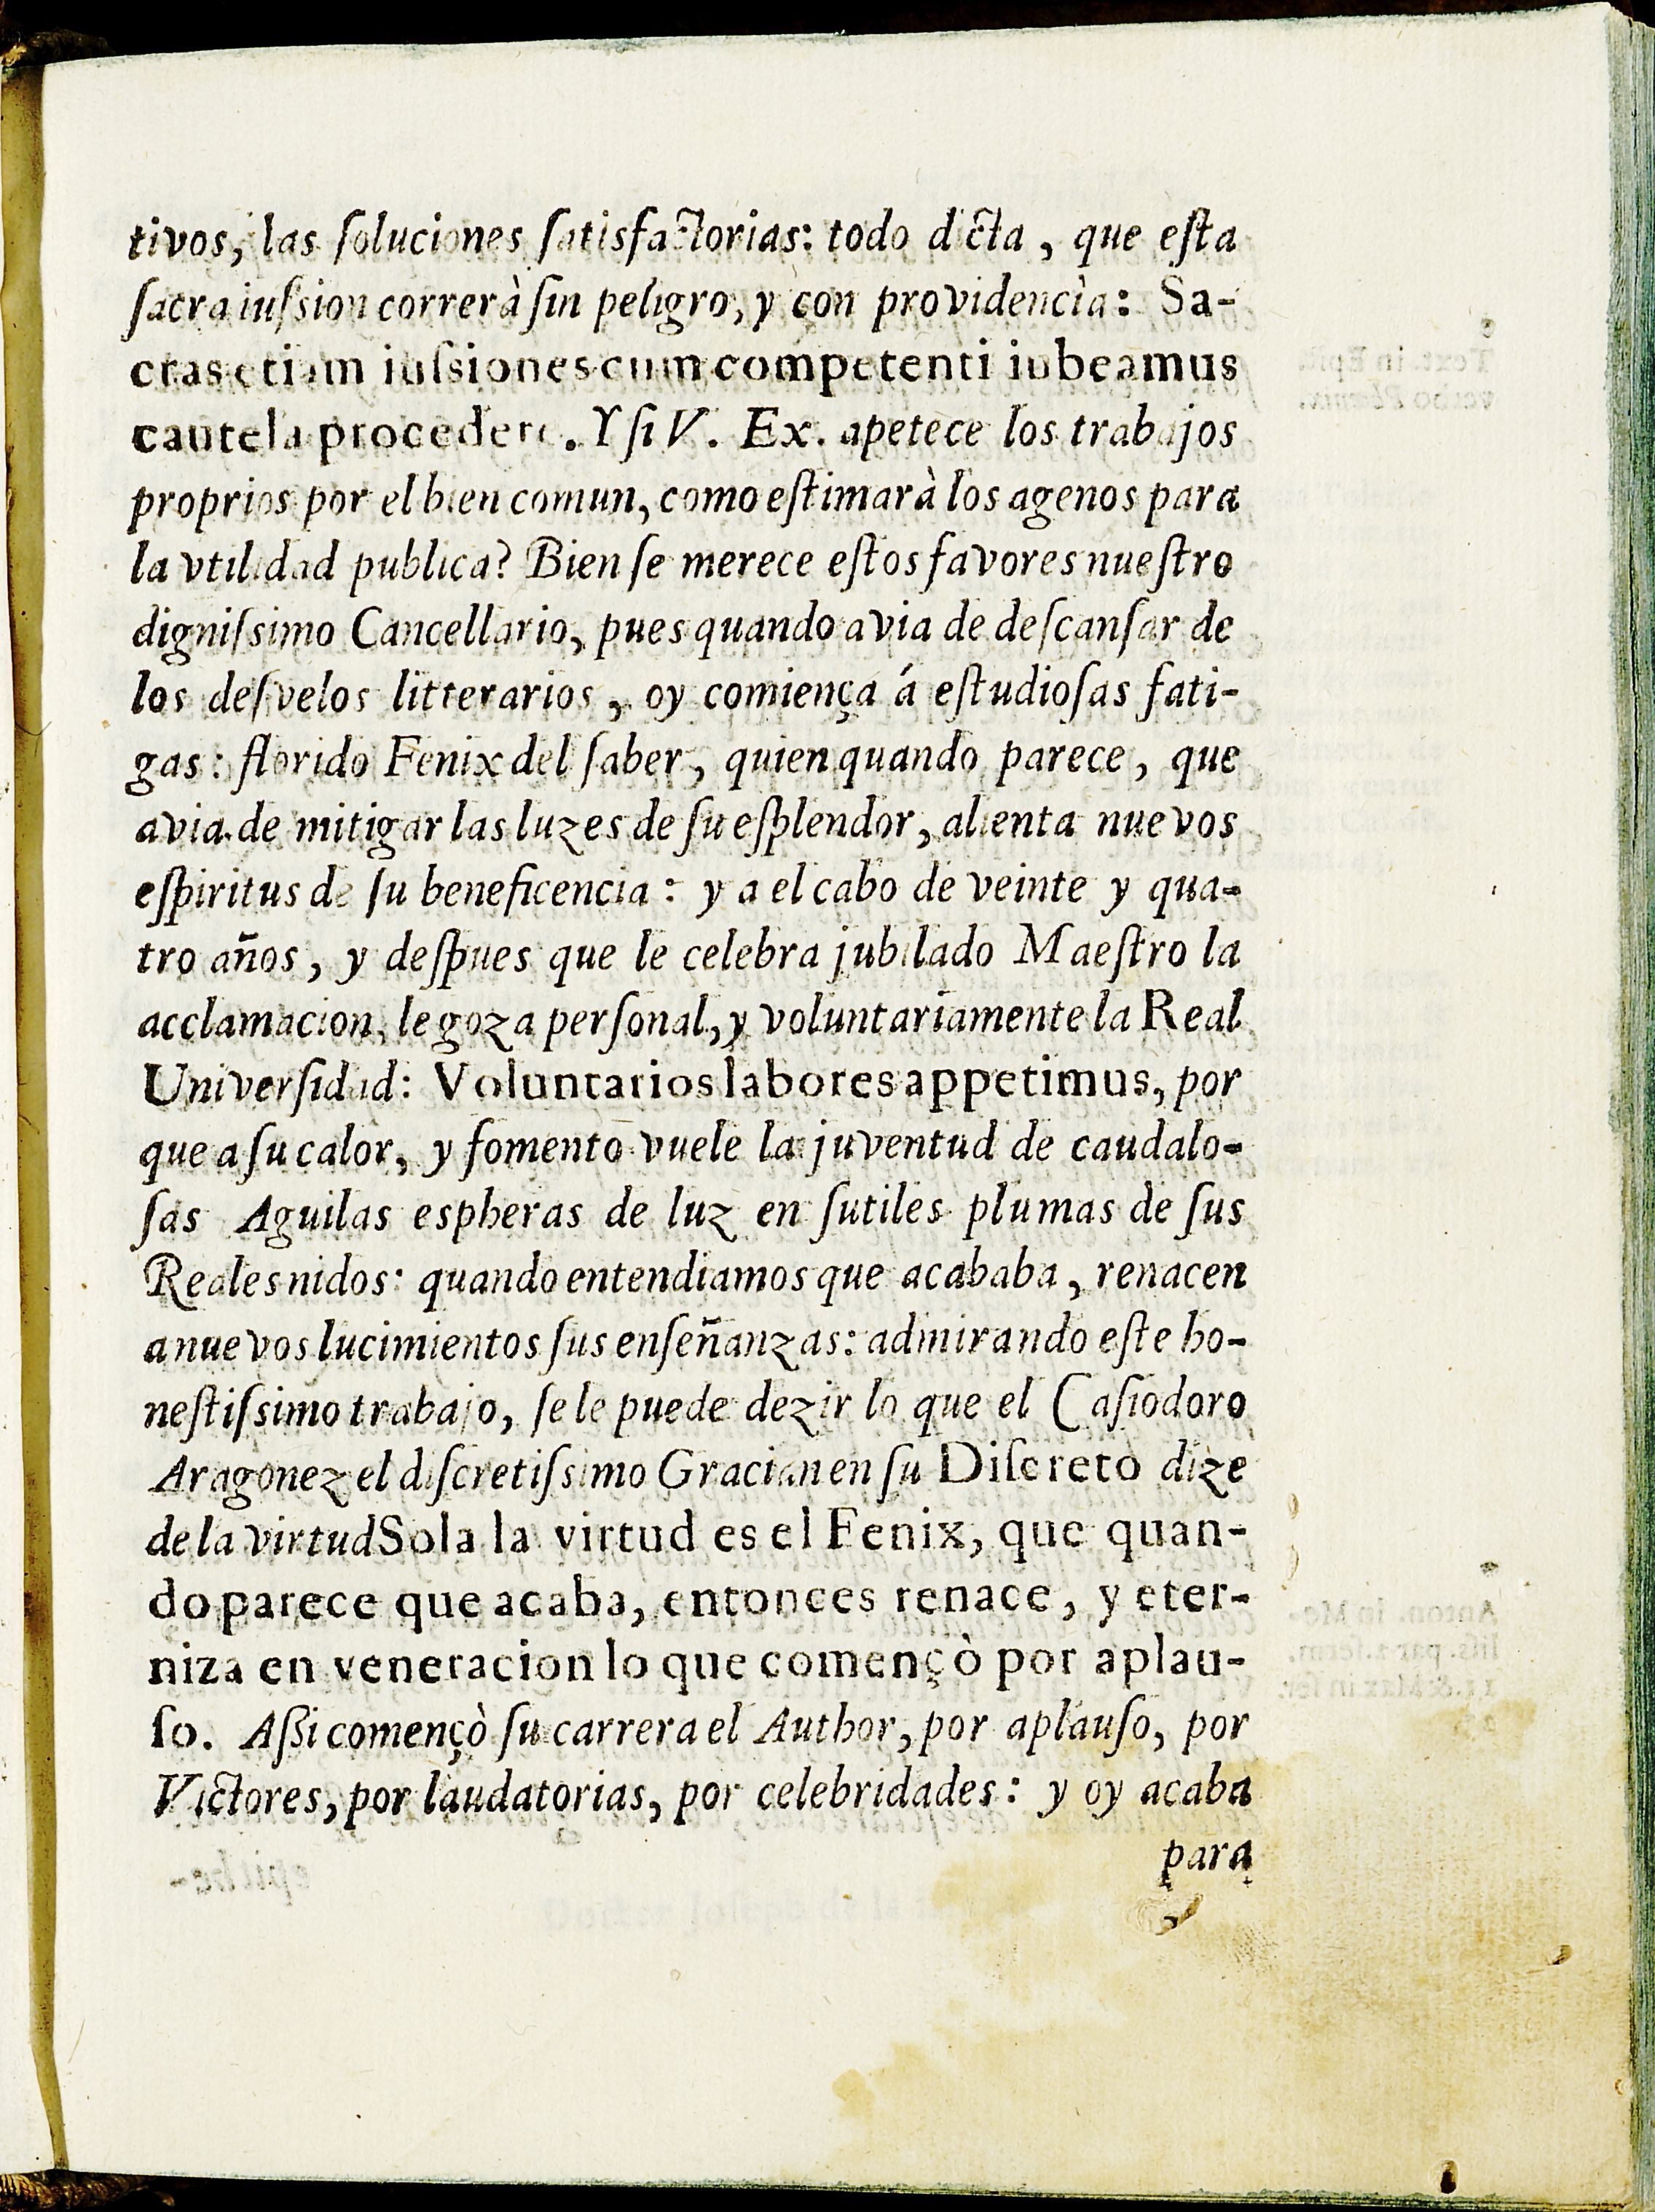 tivos, las ſoluciones ſatisfactorias: todo dicta, que eſta
ſacra iuſsion correrà ſin peligro, y con providencia: Sa-
cras etiam iuſsiones cum competenti iubeamus
cautela procedere. Y ſi V. Ex. apetece los trabajos
proprios por el bien comun, como eſtimarà los agenos para
la vtilidad publica? Bien ſe merece eſtos favores nueſtro
digniſsimo Cancellario, pues quando avia de deſcanſar de
los deſvelos litterarios, oy comiença á eſtudioſas fati-
gas: florido Fenix del ſaber, quien quando parece, que
avia de mitigar las luzes de ſu eſplendor, alienta nuevos
eſpiritus de ſu beneficencia: y a el cabo de veinte y qua-
tro años, y deſpues que le celebra jubilado Maeſtro la
acclamacion, le goza perſonal, y voluntariamente la Real
Univerſidad: Voluntarios labores appetimus, por
que a ſu calor, y fomento vuele la juventud de caudalo-
ſas Aguilas espheras de luz en ſutiles plumas de ſus
Reales nidos: quando entendiamos que acababa, renacen
a nuevos lucimientos ſus enſeñanzas: admirando eſte ho-
neſtiſsimo trabajo, ſe le puede dezir lo que el Caſiodoro
Aragonez el diſcretiſsimo Gracian en ſu Diſcreto dize
de la virtud Sola la virtud es el Fenix, que quan-
do parece que acaba, entonces renace, y eter-
niza en veneracion lo que començò por aplau-
ſo. Aſsi començò ſu carrera el Author, por aplauſo, por
Victores, por laudatorias, por celebridades: y oy acaba
para